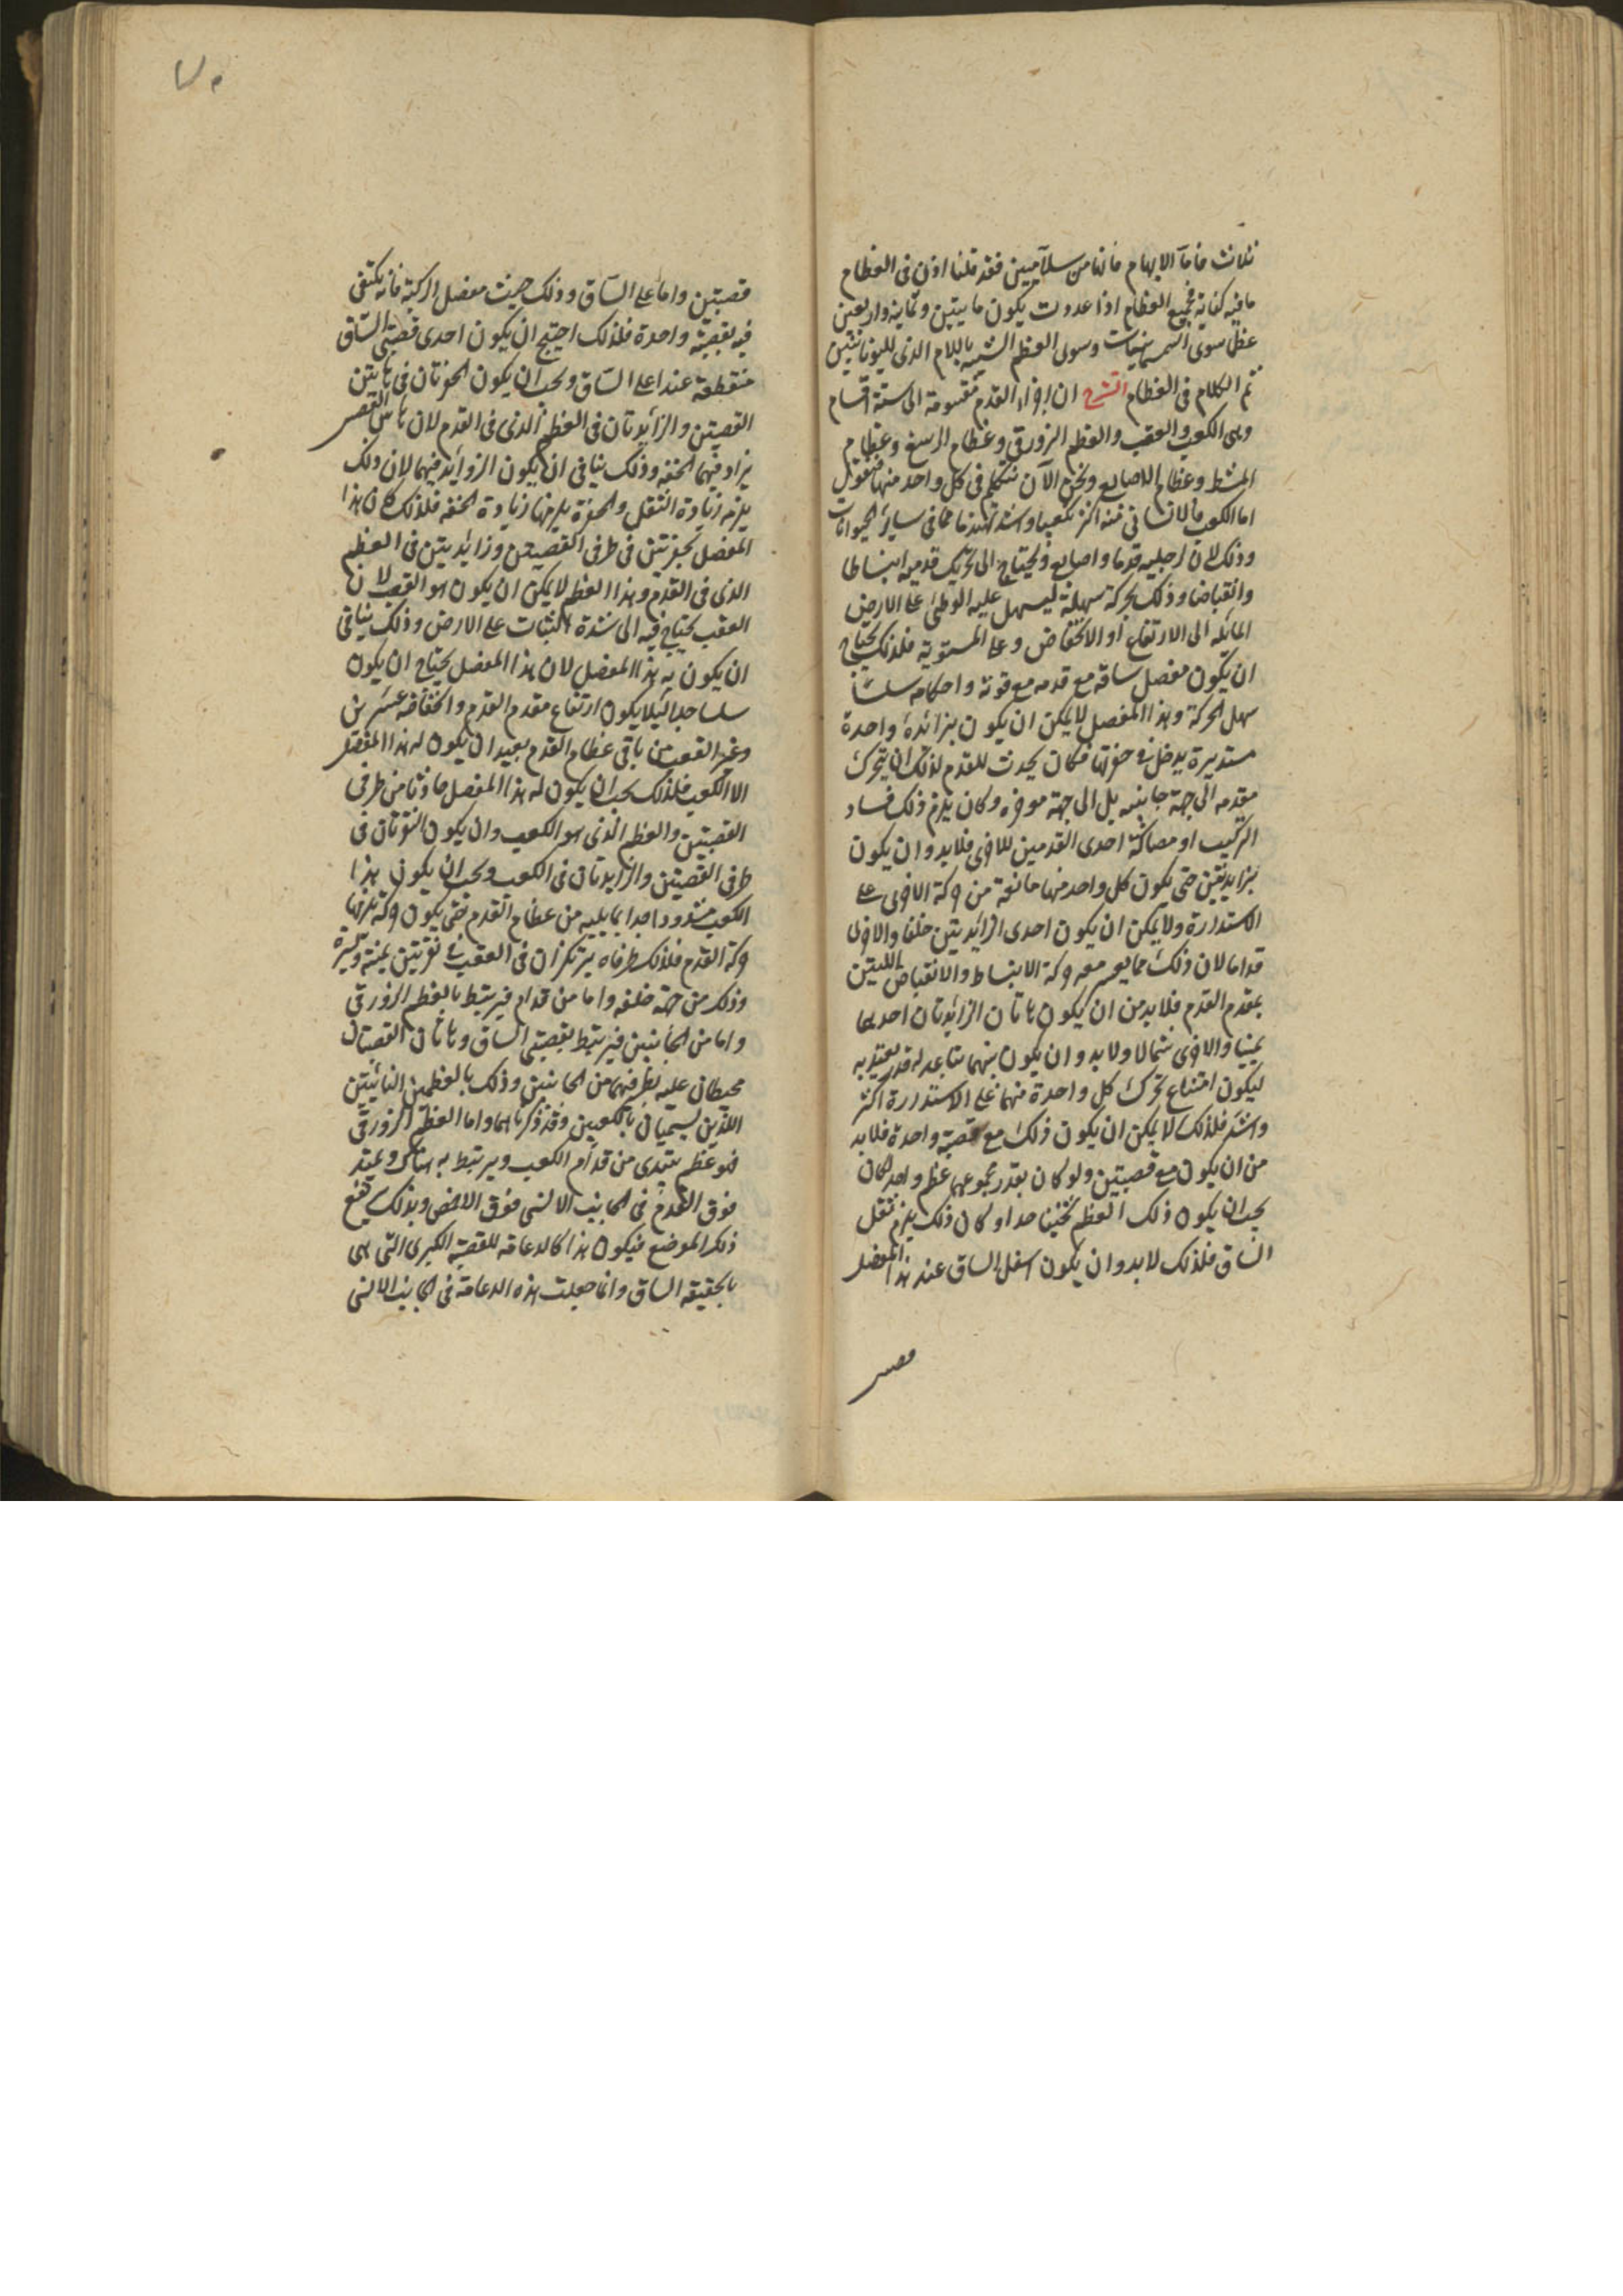 ثلاث فاما الابهام فانها من سلاميين فقد قلنا اذن فى العظام
ما فيه كفاية فجميع العظام اذا عددت يكون مايتين وثمانية واربعين
عظما سوى السمسمانيات وسوى العظم الشبيه باللام الذى لليونانيين
تم الكلام فى العظام الشرح ان اجزاء القدم مقسومة الى ستة اقسام
وهى الكعب والعقب والعظم الزورقى وعظام الرسغ وعظام
المشط وعظام الاصابع ونحن الآن نتكلم فى كل واحد منها فنقول
اما الكعب فالانسانى منه اكثر تكعيبا واشد تهندما مما فى سائر الحيوانات
وذلك لان لرجليه قدما واصابع ويحتاج الى تحريك قدميه انبساطا
وانقباضا وذلك بحركة سهلة ليسهل عليه الوطئ على الارض
المائلة الى الارتفاع او الانخفاض وعلى المستوية فلذلك يحتاج
ان يكون مفصل ساقه مع قدمه مع قوته واحكامه سلسا
سهل الحركة وهذا المفصل لا يمكن ان يكون بزائدة واحدة
مستديرة يدخل فى حفرتها فكان يحدث للقدم لذلك ان يتحرك
مقدمه الى جهة جانبه بل الى جهة مؤخره وكان يلزم ذلك فساد
التركيب او مصاكة احدى القدمين للاخرى فلا بد وان يكون
بزايدتين حتى يكون كل واحد منها مانعة من حركة الاخرى على
الاستدارة ولا يمكن ان يكون احدى الزائدتين خلفا والاخرى
قداما لان ذلك مما يعسر معه حركة الانبساط والانقباض اللتين
بمقدم القدم فلا بد من ان يكون هاتان الزائدتان احديهما
يمينا والاخرى شمالا ولا بد وان يكون بينهما تباعد له قدر يعتد به
ليكون امتناع تحرك كل واحدة منهما على الاستدارة اكثر
واشد فلذلك لا يمكن ان يكون ذلك مع قصبة واحدة فلا بد
من ان يكون مع قصبتين ولو كان بقدر مجموعهما عظم واحد لكان
يجب ان يكون ذلك العظم ثخينا جدا ولكان ذلك يلزم ثقل
الساق فلذلك لا بد وان يكون اسفل الساق عند هذا المفصل
قصبتين واما على الساق وذلك حيث مفصل الركبة فانه يكتفى
فيه بقصبة واحدة فلذلك احتيج ان يكون احدى قصبتى الساق
منقطعة عند اعلى الساق ويجب ان يكون الحفرتان فى هاتين
القصبتين والزائدتان فى العظم الذى فى القدم لان هاتين القصبتين
يزاد فيهما الخفة وذلك ينافى ان يكون الزوائد فيهما لان ذلك
يلزمه زيادة الثقل والحفرة يلزمها زيادة الخفة فلذلك كان هذا
المفصل بحفرتين فى طرفى القصبتين وزائدتين فى العظم
الذى فى القدم وهذا العظم لا يمكن ان يكون هو العقب لان
العقب يحتاج فيه الى شدة الثبات على الارض وذلك ينافى
ان يكون به هذا المفصل لان هذا المفصل يحتاج ان يكون
سلسا جدا ليلا يكون ارتفاع مقدم القدم وانخفاضه عسرين
وغير العقب من باقى عظام القدم بعيد ان يكون له هذا المفصل
الا الكعب فلذلك يجب ان يكون له هذا المفصل حادثا من طرفى
القصبتين والعظم الذى هو الكعب وان يكون النقرتان فى
طرفى القصبتين والزايدتان فى الكعب ويجب ان يكون هذا
الكعب مشدودا جدا بما يليه من عظام القدم حتى يكون حركته يلزمها
حركة القدم فلذلك طرفاه يرتكزان فى العقب فى نقرتين يمنة ويسرة
وذلك من جهة خلفه واما من قدام فيرتبط بالعظم الزورقى
واما من الجانبين فيرتبط بقصبتى الساق وهاتان القصبتان
محيطان عليه بطرفيهما من الجانبين وذلك بالعظمين الناتئين
اللذين يسميان بالكعبين وقد ذكرناهما واما العظم الزورقى
فهو عظم يبتدى من قدام الكعب ويرتبط به هناك ويمتد
فوق القدم فى الجانب الانسى فوق الاخمص وبذلك يقع
ذلك الموضع فيكون هذا كالدعامة للقصبة الكبرى التى هى
بالحقيقة الساق وانما جعلت هذه الدعامة فى الجانب الانسى